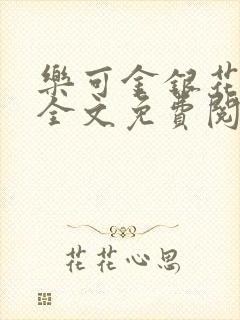 樂可金銀花
全文免費閱
花花心思